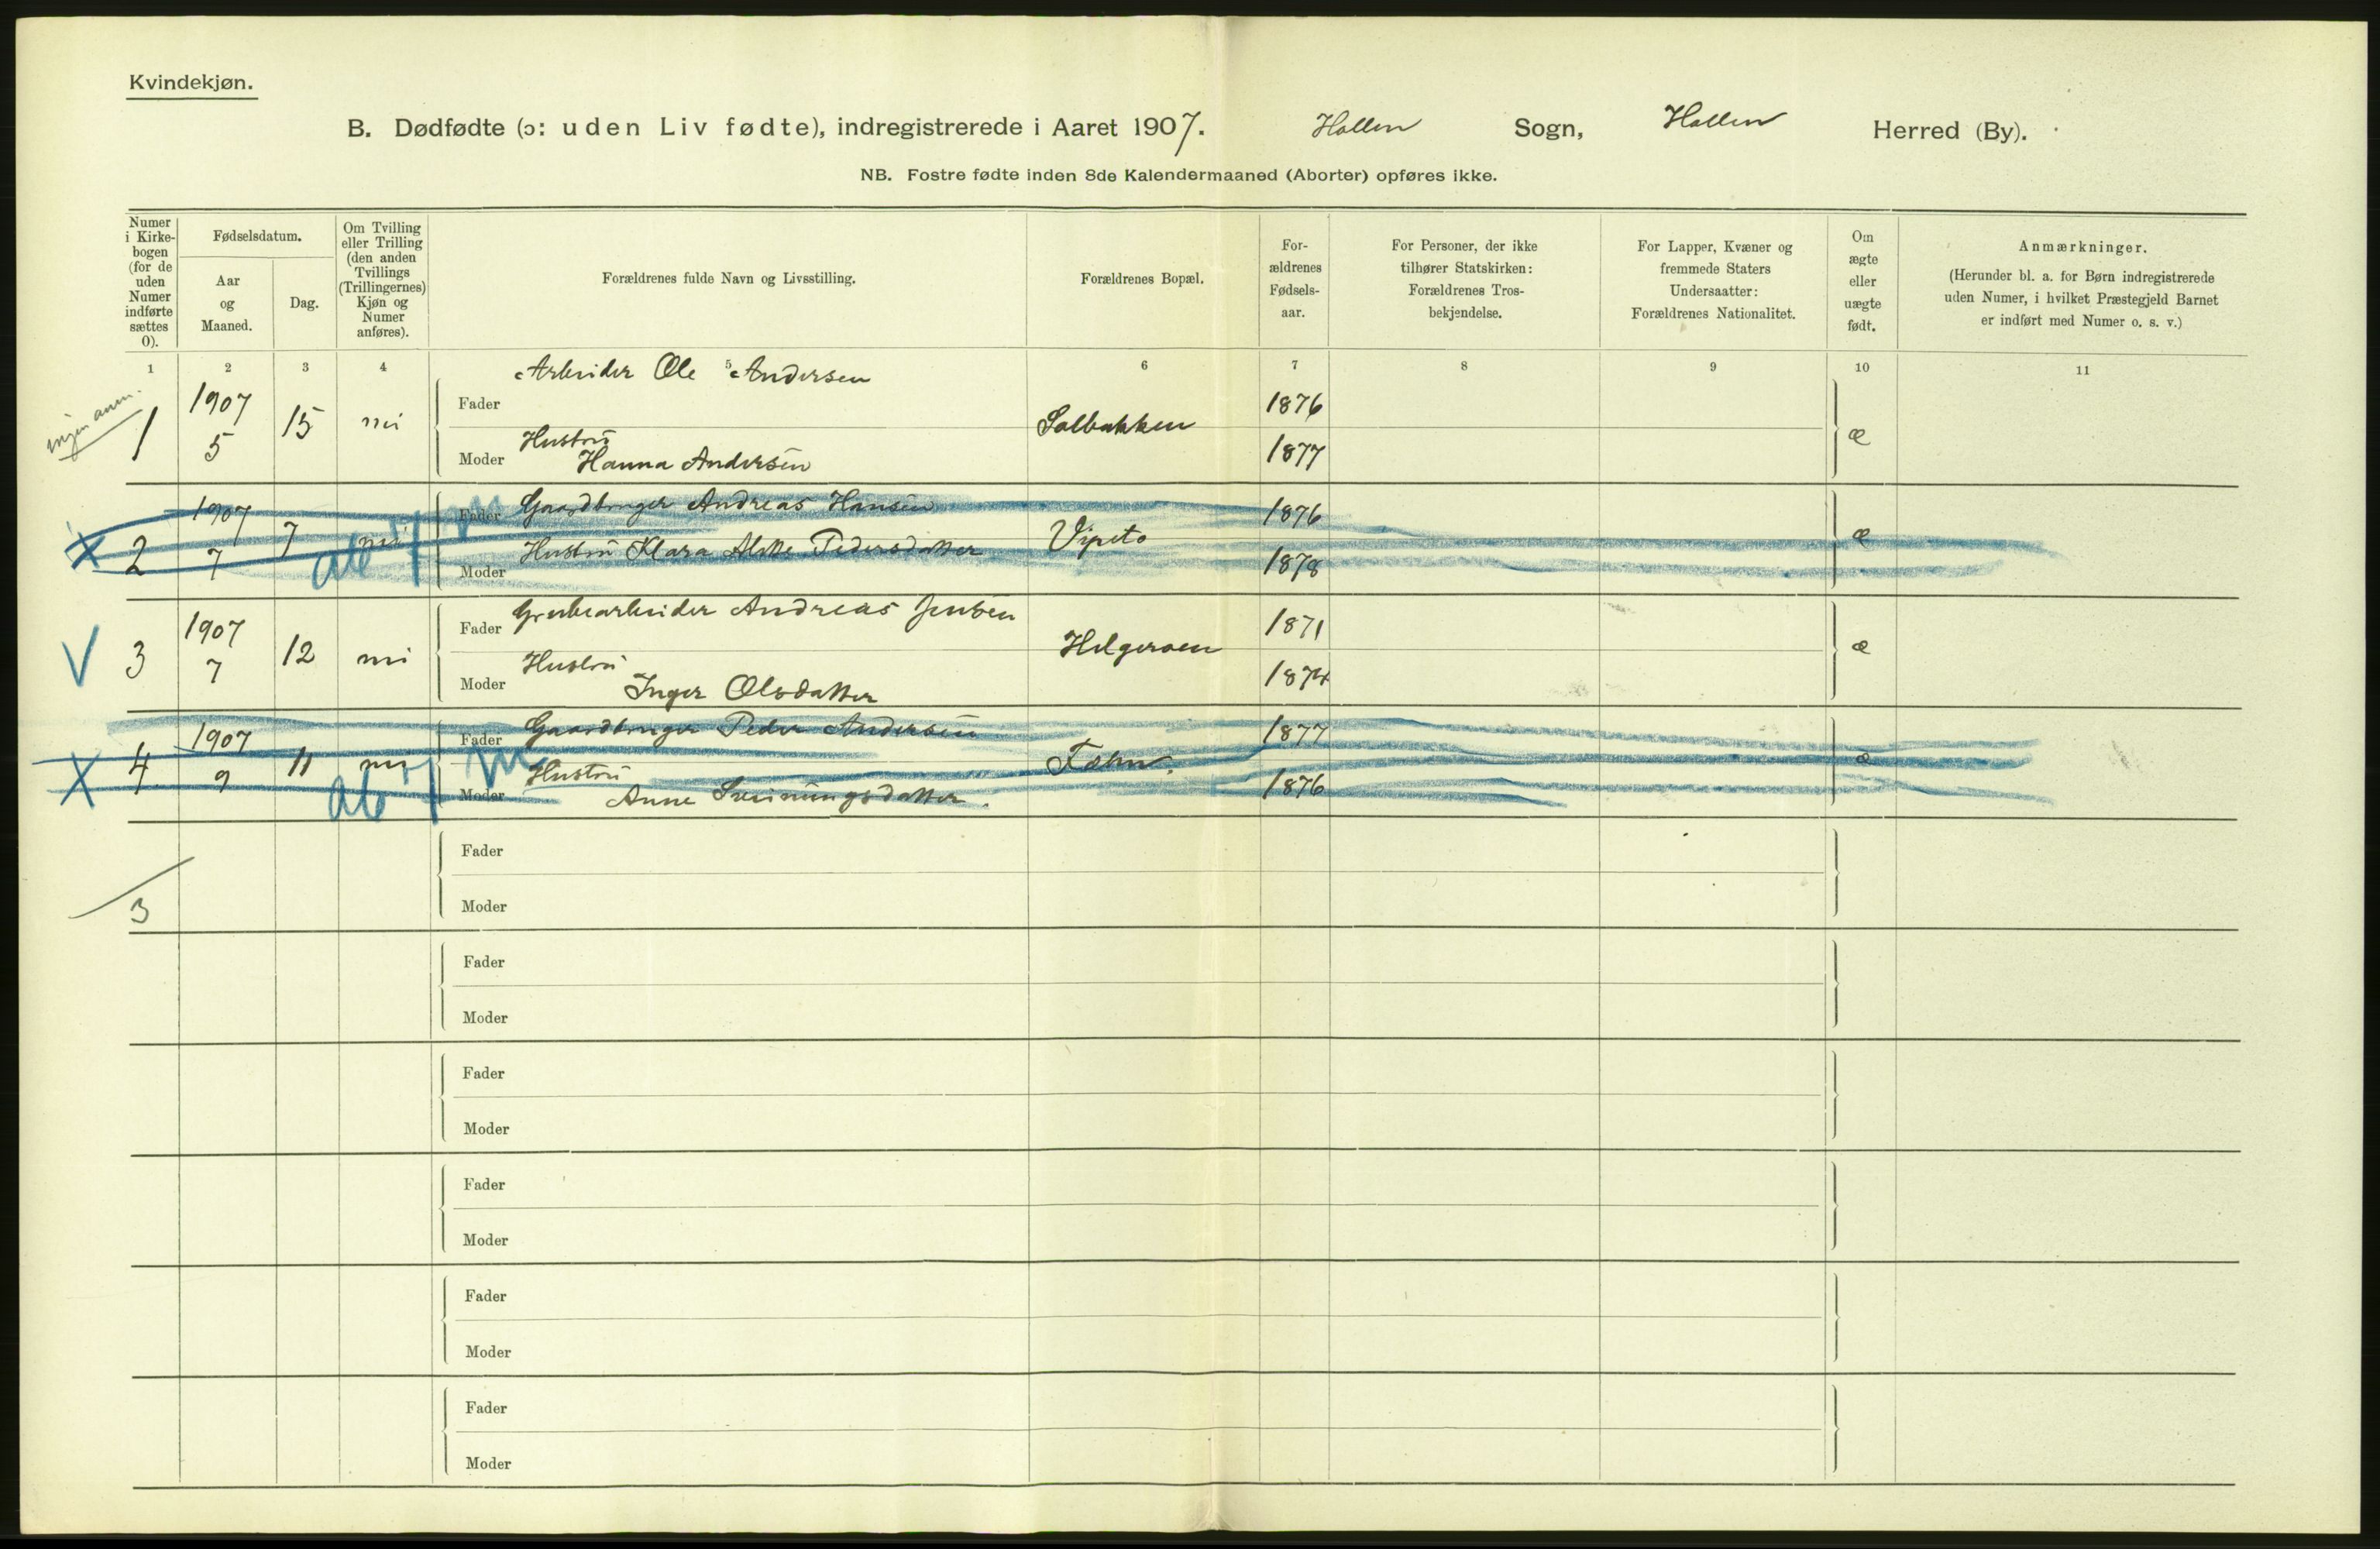 Kvindekjøn.
B. Dødfødte (ɔ: uden Liv fødte), indregistrerede i Aaret 1907. Hollen Sogn, Hollen Herred (By).
NB. Fostre fødte inden 8de Kalendermaaned (Aborter) opføres ikke.
Numer i Kirkebogen (for de uden Numer indførte sættes 0).
Fødselsdatum.
Aar og Maaned.
Dag.
Om Tvilling eller Trilling (den anden Tvillings (Trillingernes) Kjøn og Numer anføres).
Forældrenes fulde Navn og Livsstilling.
Forældrenes Bopæl.
Forældrenes Fødselsaar.
For Personer, der ikke tilhører Statskirken: Forældrenes Trosbekjendelse.
For Lapper, Kvæner og fremmede Staters Undersaatter: Forældrenes Nationalitet.
Om ægte eller uægte født.
Anmærkninger.
(Herunder bl. a. for Børn indregistrerede uden Numer, i hvilket Præstegjeld Barnet er indført med Numer o. s. v.)
1 2 3 4 5 6 7 8 9 10 11
ingen anm.
1 1907 5 15 nei
Fader Arbeider Ole Andersen
Moder Hustru Hanna Andersen
Solbakken 1876 1877 æ
X 2 1907 7 7 nei
Fader Gaardbruger Andreas Hansen
Moder Hustru Klara Pedersdatter
Vipeto 1876 1878 æ
V 3 1907 7 12 nei
Fader Grubearbeider Andreas Jensen
Moder Hustru Inger Olsdatter
Helgeroen 1871 1874 æ
X 4 1907 9 11 nei
Fader Gaardbruger Peder Andersen
Moder Hustru Anne Sveinungsdatter.
1877 1876 æ
3
Fader
Moder
Fader
Moder
Fader
Moder
Fader
Moder
Fader
Moder
Fader
Moder